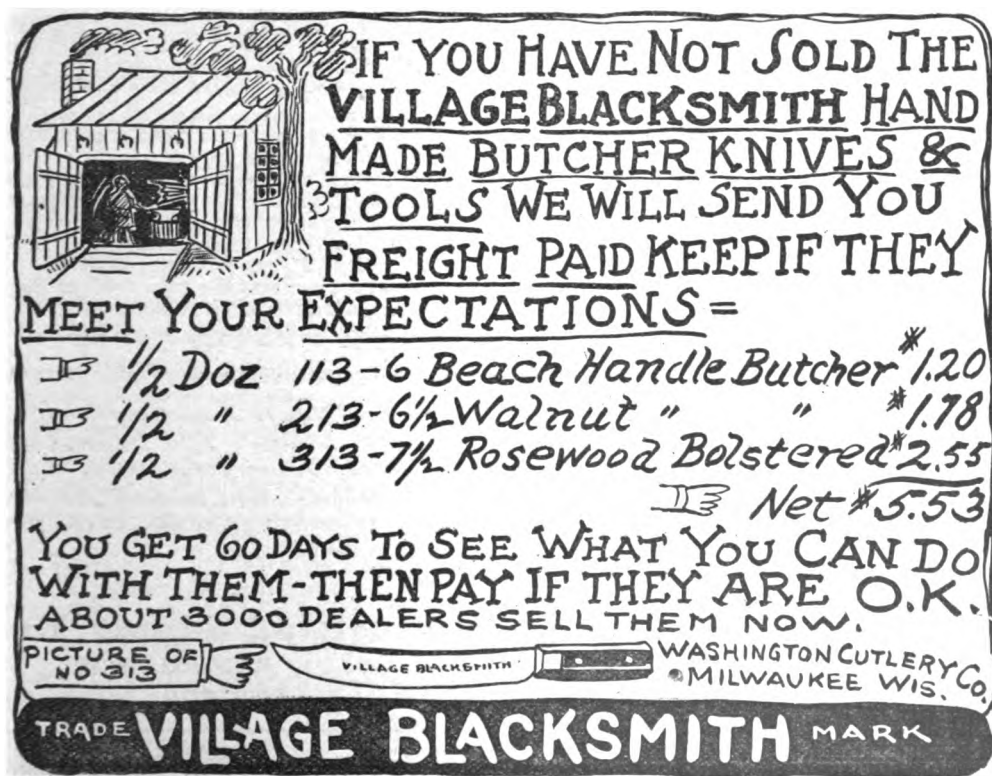 IF YOU HAVE NOT SOLD THE
VILLAGE BLACKSMITH HAND
MADE BUTCHER KNIVES &
TOOLS WE WILL SEND YOU
FREIGHT PAID KEEP IF THEY
MEET YOUR EXPECTATIONS =
1/2 Doz 113-6 Beach Handle Butcher $1.20
1/2 " 213-6 1/2 Walnut " " $1.78
1/2 " 313-7 1/2 Rosewood Bolstered $2.55
Net $5.53
YOU GET 60 DAYS TO SEE WHAT YOU CAN DO
WITH THEM - THEN PAY IF THEY ARE O.K.
ABOUT 3000 DEALERS SELL THEM NOW.
PICTURE OF
NO 313
VILLAGE BLACKSMITH
WASHINGTON CUTLERY CO.
MILWAUKEE WIS.
TRADE VILLAGE BLACKSMITH MARK